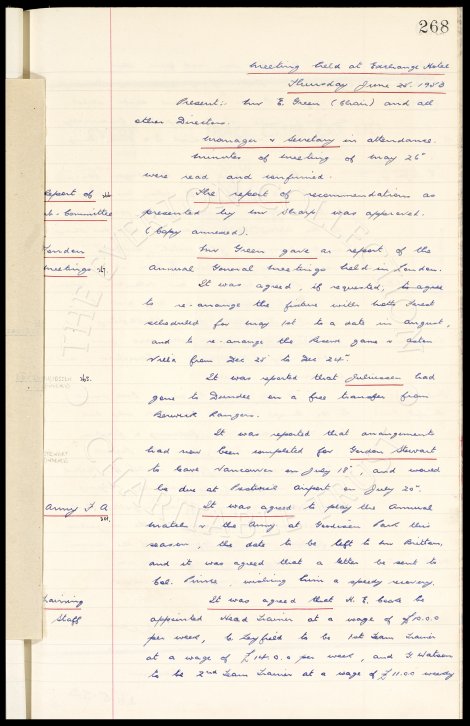 268
Meeting held at Exchange Hotel
Thursday June 25. 1953
Present:- Mr E. Green (Chair) and all
other Directors.
Manager & Secretary in attendance.
Minutes of meeting of May 26th
were read and confirmed.
Report of
Sub-Committee
The report of recommendations as
presented by Mr Sharp, was approved.
(Copy annexed).
London
Meetings
Mr Green gave a report of the
Annual General Meetings held in London.
It was agreed, if requested, to agree
to re-arrange the fixture with Notts Forest
scheduled for May 1st to a date in August,
and to re-arrange the Reserve game v Aston
Villa from Dec 25th to Dec 24th.
It was reported that Juliussen had
gone to Dundee on a free transfer from
Berwick Rangers.
It was reported that arrangements
had now been completed for Gordon Stewart
to leave Vancouver on July 18th, and would
be due at Prestwick Airport on July 20th.
Army F A
It was agreed to play the Annual
match v the Army at Goodison Park this
season, the date to be left to Mr Britton,
and it was agreed that a letter be sent to
Col. Prince, wishing him a speedy recovery.
Training
Staff
It was agreed that H. E. Cooke be
appointed Head Trainer at a wage of
per week, C Leyfield to be 1st Team Trainer
at a wage of £14.0.0 per week, and G Watson
to be 2nd Team Trainer at a wage of £11.00 weekly
THE EVERTON